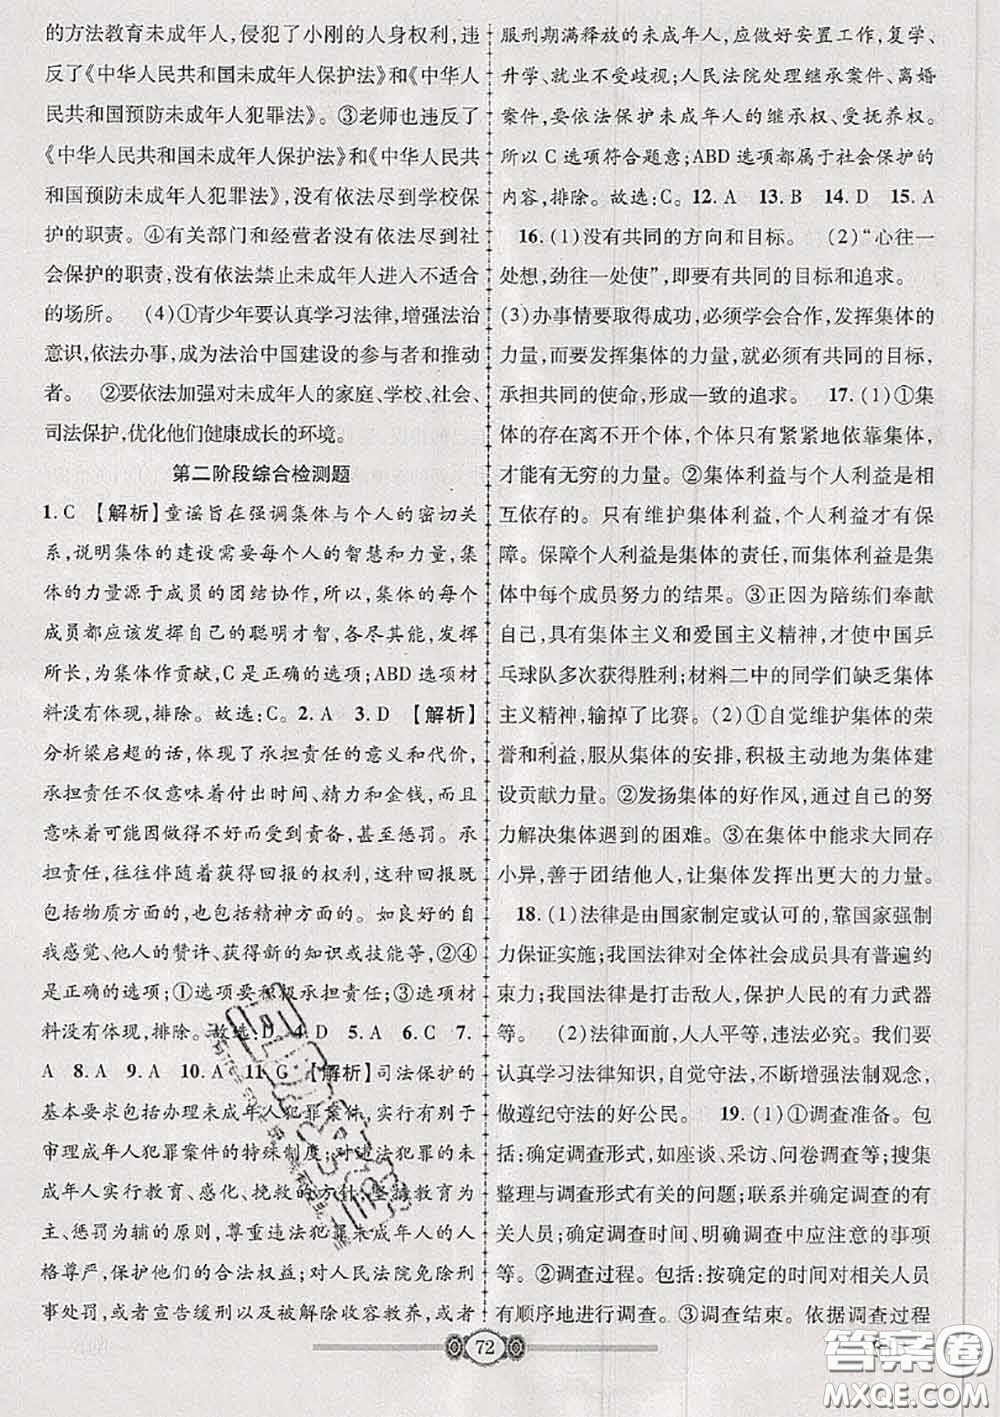 的方法教育未成年人,侵犯了小刚的人身权利,违
反了《中华人民共和国未成年人保护法》和《中华人
民共和国预防未成年人犯罪法》。③老师也违反了
《中华人民共和国未成年人保护法》和《中华人民共
和国预防未成年人犯罪法》,没有依法尽到学校保
护的职责。④有关部门和经营者没有依法尽到社
会保护的职责,没有依法禁止未成年人进入不适合
的场所。 (4)①青少年要认真学习法律,增强法治
意识,依法办事,成为法治中国建设的参与者和推动
者。 ②要依法加强对未成年人的家庭、学校、社会、
司法保护,优化他们健康成长的环境。
第二阶段综合检测题
1. C 【解析】童谣旨在强调集体与个人的密切关
系,说明集体的建设需要每个人的智慧和力量,集体
的力量源于成员的团结协作,所以,集体的每个
成员都应该发挥自己的聪明才智,各尽其能,发挥
所长,为集体作贡献,C是正确的选项;ABD选项材
料没有体现,排除。故选:C。2. A 3. D 【解析】
分析梁启超的话,体现了承担责任的意义和代价,
承担责任不仅意味着付出时间、精力和金钱,而且
意味着可能因做得不好而受到责备,甚至惩罚。承
担责任,往往伴随着获得回报的权利,这种回报既
包括物质方面的,也包括精神方面的。如良好的自
我感觉、他人的赞许、获得新的知识或技能等,②④
是正确的选项;①选项需要积极承担责任;③选项材
料没有体现,排除。故选:D 4. D 5. A 6. C 7.
A 8. A 9. A 10. A 11. C 【解析】司法保护的
基本要求包括办理未成年人犯罪案件,实行有别于
审理成年人犯罪案件的特殊制度;对违法犯罪的未
成年人实行教育、感化、挽救的方针,坚持教育为
主、惩罚为辅的原则,尊重违法犯罪未成年人的人
格尊严,保护他们的合法权益;对人民法院免除刑
事处罚,或者宣告缓刑以及被解除收容教养,或者
服刑期满释放的未成年人,应做好安置工作,复学、
升学、就业不受歧视;人民法院处理继承案件、离婚
案件,要依法保护未成年人的继承权、受抚养权。
所以C选项符合题意;ABD选项都属于社会保护的
内容,排除。故选:C。 12. A 13. B 14. D 15. A
16. (1)没有共同的方向和目标。 (2)“心往一
处想,劲往一处使”,即要有共同的目标和追求。
(3)办事情要取得成功,必须学会合作,发挥集体的
力量,而要发挥集体的力量,就必须有共同的目标,
承担共同的使命,形成一致的追求。 17. (1)①集
体的存在离不开个体,个体只有紧紧地依靠集体,
才能有无穷的力量。②集体利益与个人利益是相
互依存的。只有维护集体利益,个人利益才有保
障。保障个人利益是集体的责任,而集体利益是集
体中每个成员努力的结果。③正因为陪练们奉献
自己,具有集体主义和爱国主义精神,才使中国乒
乓球队多次获得胜利;材料二中的同学们缺乏集体
主义精神,输掉了比赛。(2)①自觉维护集体的荣
誉和利益,服从集体的安排,积极主动地为集体建
设贡献力量。②发扬集体的好作风,通过自己的努
力解决集体遇到的困难。③在集体中能求大同存
小异,善于团结他人,让集体发挥出更大的力量。
18. (1)法律是由国家制定或认可的,靠国家强制
力保证实施;我国法律对全体社会成员具有普遍约
束力;我国法律是打击敌人,保护人民的有力武器
等。 (2)法律面前,人人平等,违法必究。我们要
认真学习法律知识,自觉守法,不断增强法制观念,
做遵纪守法的好公民。 19. (1)①调查准备。包
括:确定调查形式,如座谈、采访、问卷调查等;搜集
整理与调查形式有关的问题;联系并确定调查的有
关人员;确定调查时间、明确调查中应注意的事项
等。②调查过程。包括:按确定的时间对相关人员
有顺序地进行调查。③调查结束。依据调查过程
72
答案卷
MXQE.COM